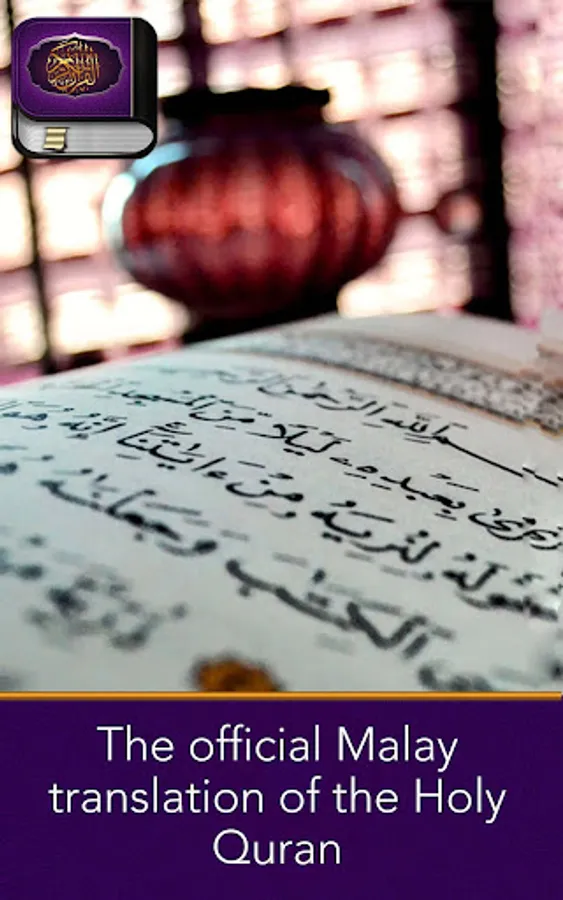 بِسْمِ ٱللَّهِ ٱلرَّحْمَٰنِ
أَسْرَىٰ بِعَبْدِهِۦ لَيْلًا مِّنَ ٱلْمَسْجِدِ
حَوْلَهُۥ لِنُرِيَهُۥ مِنْ ءَايَٰتِنَآ إِنَّهُۥ هُوَ
ٱلْكِتَٰبَ وَجَعَلْنَٰهُ
The official Malay
translation of the Holy
Quran